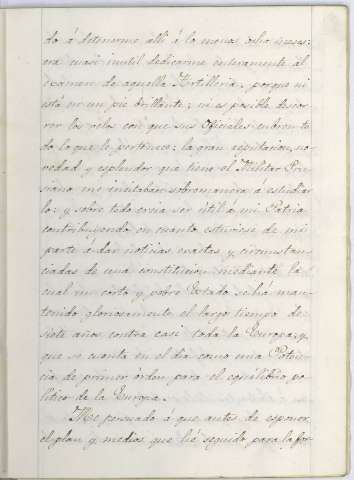 do á detenerme alli á lo menos ocho meses;
era cuasi inutil dedicarme enteramente al
exâmen de aquella Artilleria, porque ni
está en un pie brillante; ni es posible descor-
rer los velos con que sus Oficiales cubren to
do lo que le pertenece: la gran reputacion, no
vedad y esplendor que tiene el Militar Pru
siano me incitaban sobremanera á estudiar
lo: y sobre todo creia ser útil á mi Patria
contribuyendo en cuanto estuviese de mi
parte á dar noticias exactas y circunstan
ciadas de una constitucion mediante la
cual un corto y pobre Estado se há man-
tenido gloriosamente el largo tiempo de
siete años contra casi toda la Europa, y
que se cuenta en el dia como una Poten-
cia de primer órden para el equilibrio po
lítico de la Europa.
Me persuado á que antes de esponer
el plan y medios que hé seguido para la for